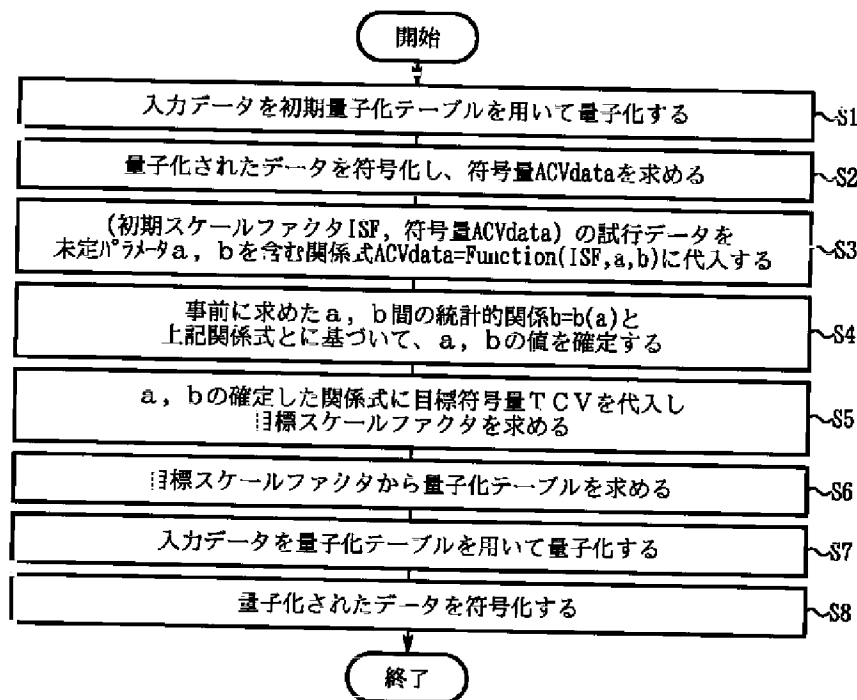 開始
入力データを初期量子化テーブルを用いて量子化する
~S1
量子化されたデータを符号化し、符号量ACVdataを求める
~S2
(初期スケールファクタISF, 符号量ACVdata) の試行データを
未定パラメータa, bを含む関係式ACVdata=Function(ISF,a,b)に代入する
~S3
事前に求めたa, b間の統計的関係b=b(a)と
上記関係式とに基づいて、a, bの値を確定する
~S4
a, bの確定した関係式に目標符号量TCVを代入し
目標スケールファクタを求める
~S5
目標スケールファクタから量子化テーブルを求める
~S6
入力データを量子化テーブルを用いて量子化する
~S7
量子化されたデータを符号化する
~S8
終了